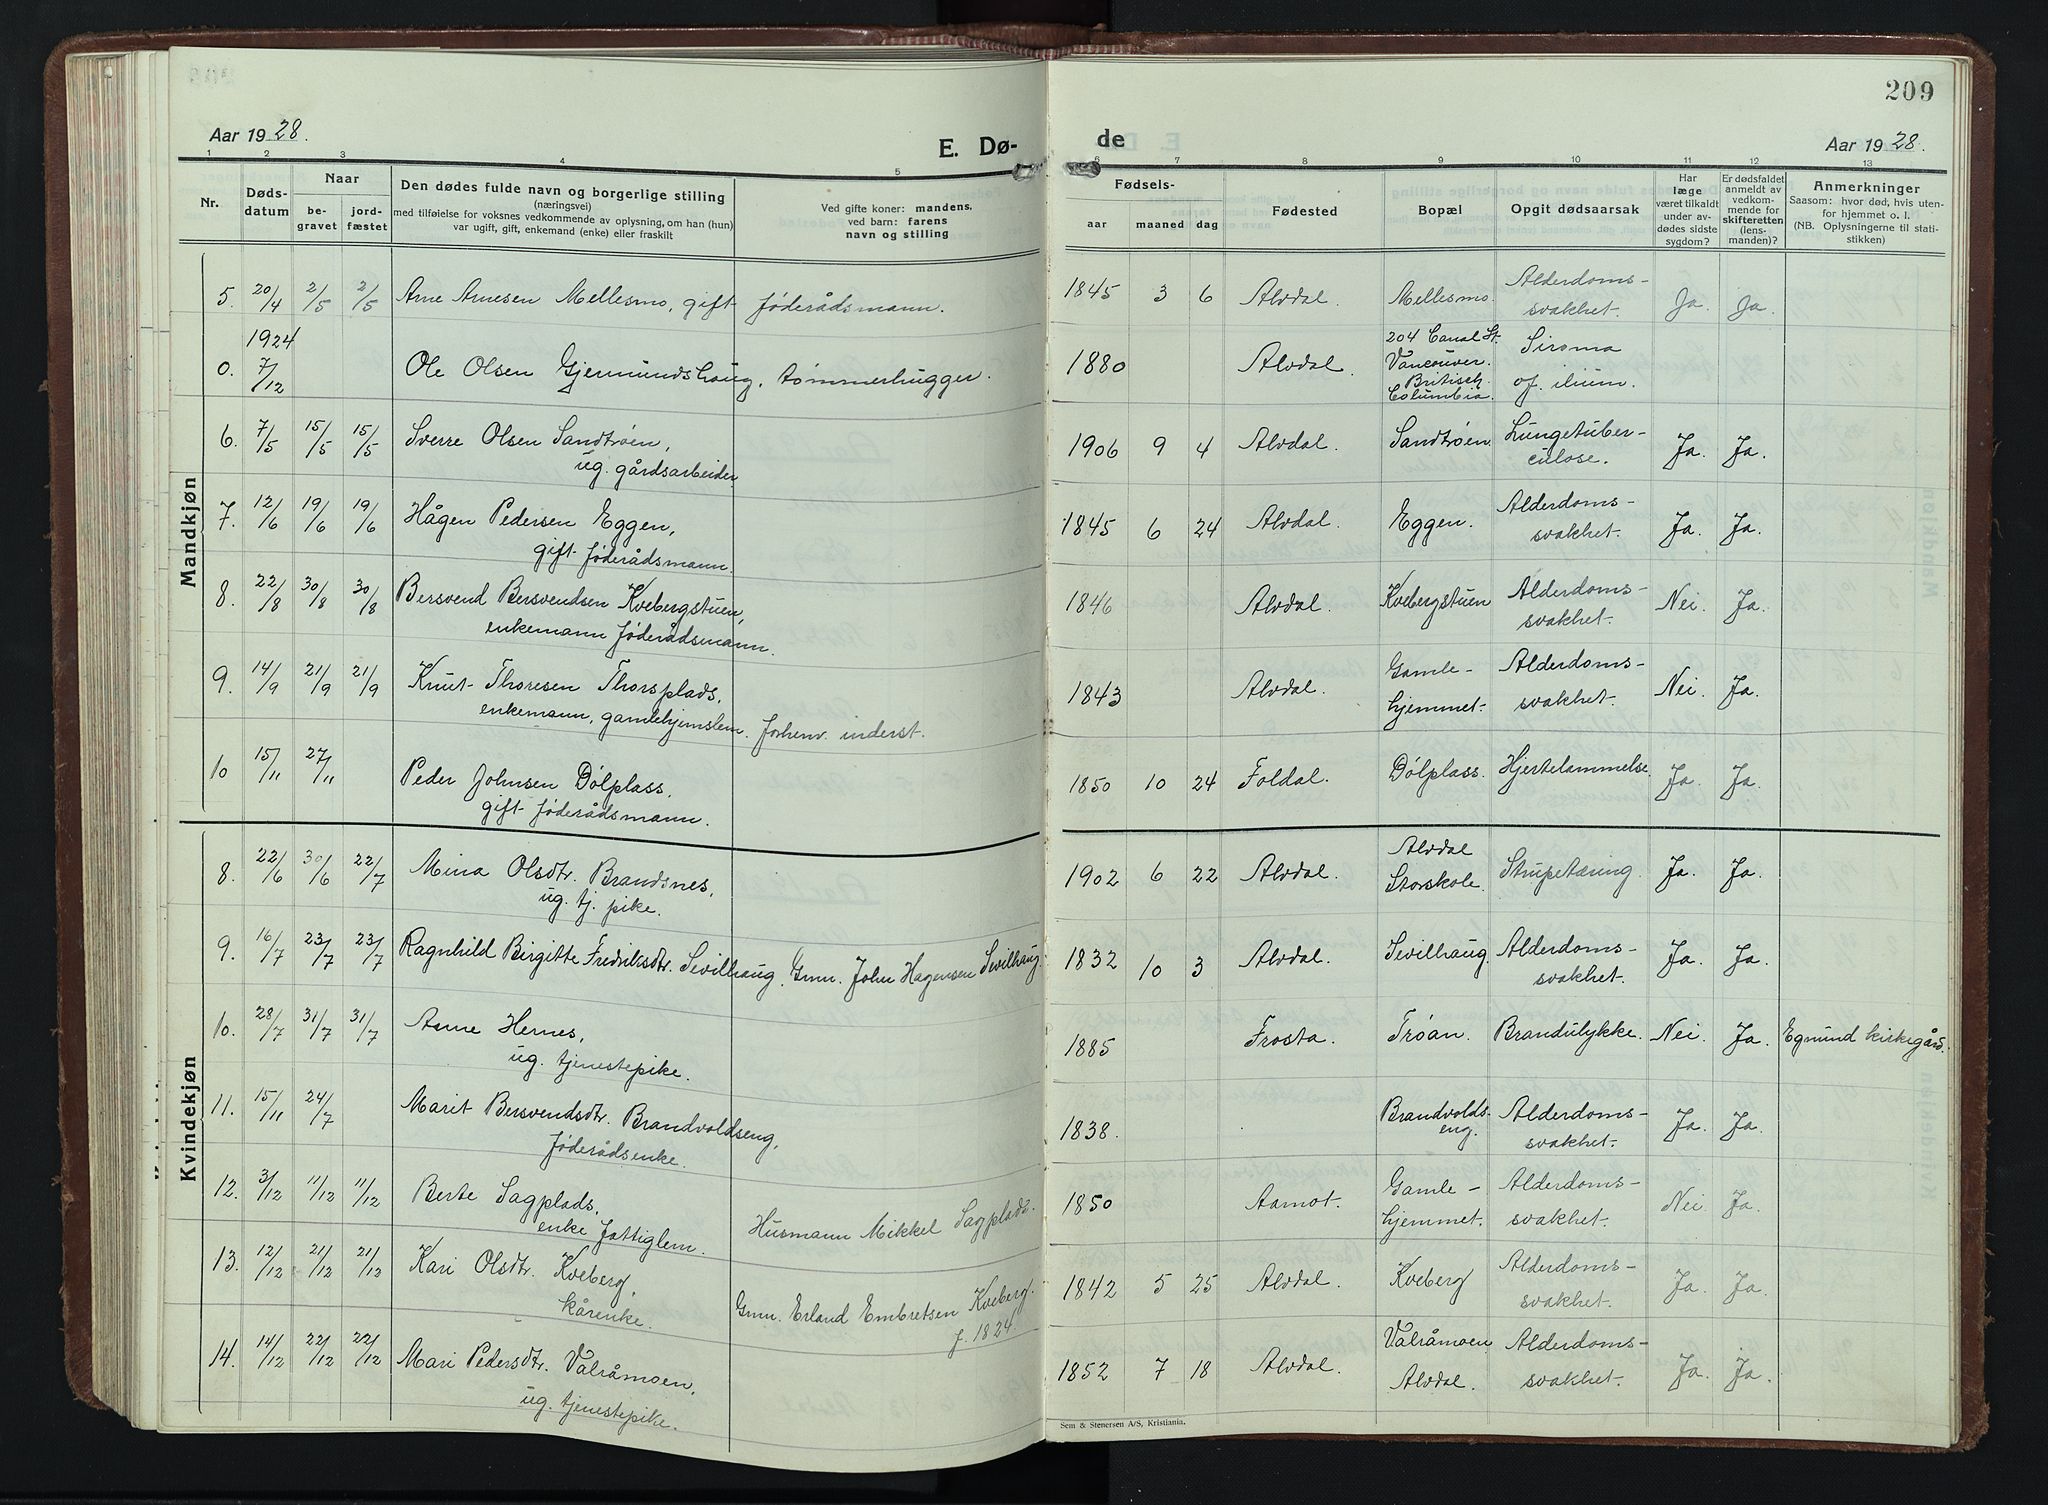 209
Aar 1928.
E. Dø-
de
Aar 1928.
1 2 3 4 5 6 7 8 9 10 11 12 13
Nr.
Døds-
datum
Naar
be-
gravet
jord-
fæstet
Den dødes fulde navn og borgerlige stilling
(næringsvei)
med tilføielse for voksnes vedkommende av oplysning, om han (hun)
var ugift, gift, enkemand (enke) eller fraskilt
Ved gifte koner: mandens,
ved barn: farens
navn og stilling
Fødsels-
aar maaned dag
Fødested
Bopæl
Opgit dødsaarsak
Har
læge
været tilkaldt
under av-
dødes sidste
sygdom?
Er dødsfaldet
anmeldt av
vedkom-
mende for
skifteretten
(lens-
manden)?
Anmerkninger
Saasom: hvor død, hvis uten-
for hjemmet o. l.
(NB. Oplysningerne til stati-
stikken)
Mandkjøn
5. 20/4 2/5 2/5 Arne Arnesen Mellesmo, gift føderådsmann. 1845 3 6 Alvdal. Mellesmo. Alderdoms-
svakhet. Ja. Ja.
1924
0. 7/12 Ole Olsen Gjermundshaug, tømmerhugger. 1880 Alvdal. 204 Canal St.
Vancouver.
Britisch.
Columbia. Siroma
of. ilium.
6. 7/5 15/5 15/5 Sverre Olsen Sandtrøen,
ug. gårdsarbeider. 1906 9 4 Alvdal. Sandtrøen. Lungetuber-
culose. Ja. Ja.
7. 12/6 19/6 19/6 Hågen Pedersen Eggen,
gift føderådsmann. 1845 6 24 Alvdal. Eggen. Alderdoms-
svakhet. Ja. Ja.
8. 22/8 30/8 30/8 Bersvend Bersvendsen Kvebergstuen,
enkemann føderådsmann. 1846 Alvdal. Kvebergstuen Alderdoms-
svakhet. Nei. Ja.
9. 14/9 21/9 21/9 Knut Thoresen Thorsplads,
enkemann, gamlehjemslem. Forhenv. inderst. 1843 Alvdal. Gamle-
hjemmet. Alderdoms-
svakhet. Nei. Ja.
10 15/11 27/11 Peder Johnsen Dølplass,
gift føderådsmann. 1850 10 24 Foldal. Dølplass. Hjertelammelse. Ja. Ja.
Kvindekjøn
8. 22/6 30/6 22/7 Mina Olsdtr. Brandsnes,
ug. tj. pike. 1902 6 22 Alvdal. Alvdal
Storskole. Strupetæring. Ja. Ja.
9. 16/7 23/7 23/7 Ragnhild Birgitte Fredriksdtr. Sevilhaug, Gmn. John Hagensen Sevilhaug. 1832 10 3 Alvdal. Sevilhaug. Alderdoms-
svakhet. Ja. Ja.
10. 28/7 31/7 31/7 Anne Hernes,
ug. tjenestepike. 1885 Frosta. Trøan. Brandulykke. Nei. Ja. Egnund kirkegård.
11. 15/11 24/7 Marit Bersvendsdtr. Brandvoldseng,
føderådsenke. 1838. Brandvolds.
eng. Alderdoms-
svakhet. Ja. Ja.
12. 3/12 11/12 11/12 Berte Sagplads,
enke fattiglem. Husmann Mikkel Sagplads. 1850 Aamot. Gamle-
hjemmet. Alderdoms-
svakhet. Nei. Ja.
13. 12/12 21/12 21/12 Kari Olsdtr. Kveberg,
kårenke. Gmn. Erland Embretsen Kveberg.
f. 1824. 1842 5 25 Alvdal. Kveberg Alderdoms-
svakhet. Ja. Ja.
14. 14/12 22/12 22/12 Mari Pedersdtr. Valråmoen,
ug. tjenestepike. 1852 7 18 Alvdal. Valråmoen
Alvdal. Alderdoms-
svakhet. Ja. Ja.
Sem & Stenersen A/S, Kristiania.